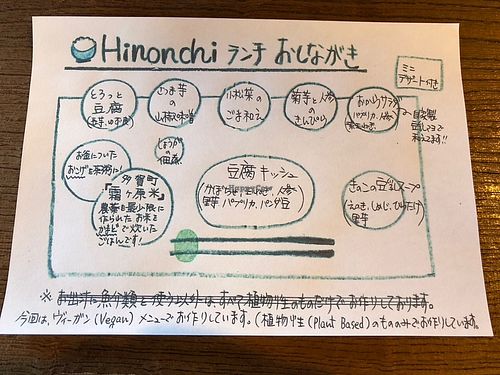 Hinonchi ランチ おしながき
ミニ
デザート付き
とろっと
豆腐
(長芋、ゆず胡椒)
さつま芋
の
山椒味噌
小松菜の
ごま和え
菊芋と人参
の
きんぴら
おからサラダ
パプリカ、人参
自家製
豆乳マヨで
和えてます!!
お釜についた
おコゲをお茶漬に!
しょうがの
佃煮
多賀町
「霜ヶ原米」
農薬を最少限に
作られたお米を
かまどで炊いた
ごはんです!
豆腐キッシュ
かぼちゃ 人参
里芋 パプリカ、パンダ豆
きのこの豆乳スープ
えのき、しめじ、ひらたけ
里芋
※ お出汁に魚介類を使う以外は、すべて植物性のものだけでお作りしております。
今回は、ヴィーガン(Vegan)メニューでお作りしています。(植物性(Plant Based)のもののみでお作りしています。